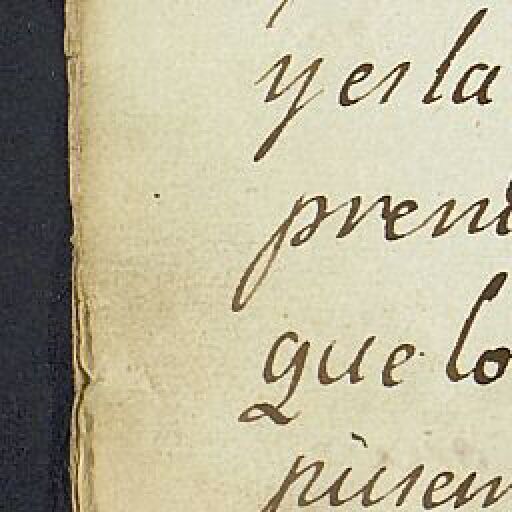 y es la
pren
que lo
pusem